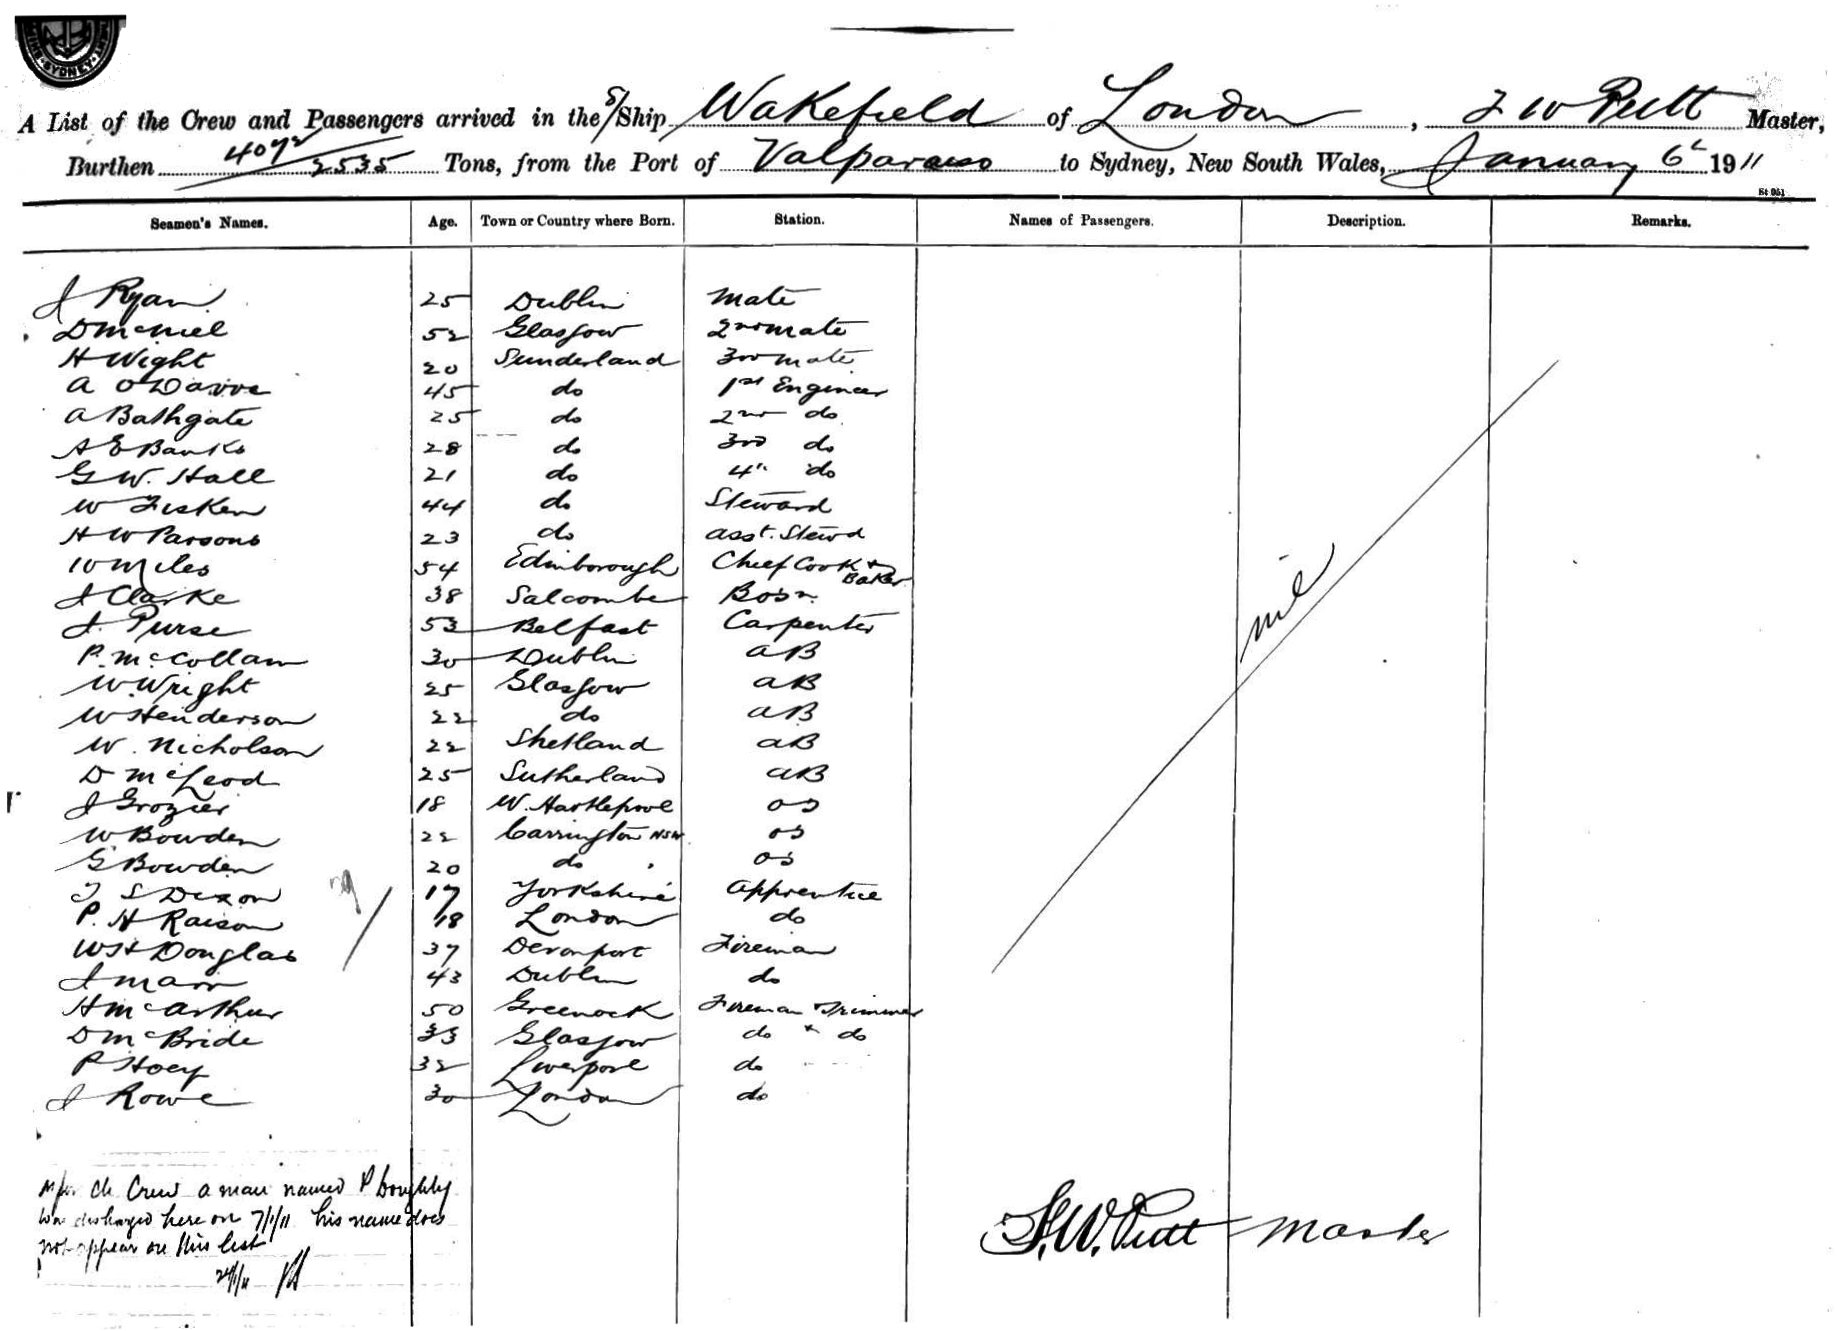 SYDNEY
A List of the Crew and Passengers arrived in the S/Ship Wakefield of London, F W Pitt Master,
Burthen 4072 / 2535 Tons, from the Port of Valparaiso to Sydney, New South Wales, January 6th 1911
St 051
Seamen's Names. Age. Town or Country where Born. Station. Names of Passengers. Description. Remarks.
J Ryan 25 Dublin Mate
D McNiel 52 Glasgow 2nd Mate
H Wight 20 Sunderland 3rd Mate
A O'Davve 45 do 1st Engineer
A Bathgate 25 do 2nd do
A E Banks 28 do 3rd do
G W. Hall 21 do 4th do
W Fisken 44 do Steward
H W Parsons 23 do asst. Stewd
W Miles 54 Edinborough Chief Cook & Baker
J Clarke 38 Salcombe Bosn
J. Purse 53 Belfast Carpenter
P. McCollam 30 Dublin AB
W. Wright 25 Glasgow AB
W Henderson 22 do AB
W. Nicholson 22 Shetland AB
D McLeod 25 Sutherland AB
J Grozier 18 W. Hartlepool OS
W Bowden 22 Carrington NSW OS
G Bowden 20 do OS
F S Dixon 17 Yorkshire Apprentice
P. H Raison 18 London do
W H Douglas 37 Devonport Fireman
J Marr 43 Dublin do
H McArthur 50 Greenock Fireman & Trimmer
D McBride 33 Glasgow do & do
P Hoey 32 Liverpool do
J Rowe 30 London do
nil
Crew a man named P Doughty
was discharged here on 7/1/11 his name does
not appear on this list
24/1/11
F. W. Pitt Master